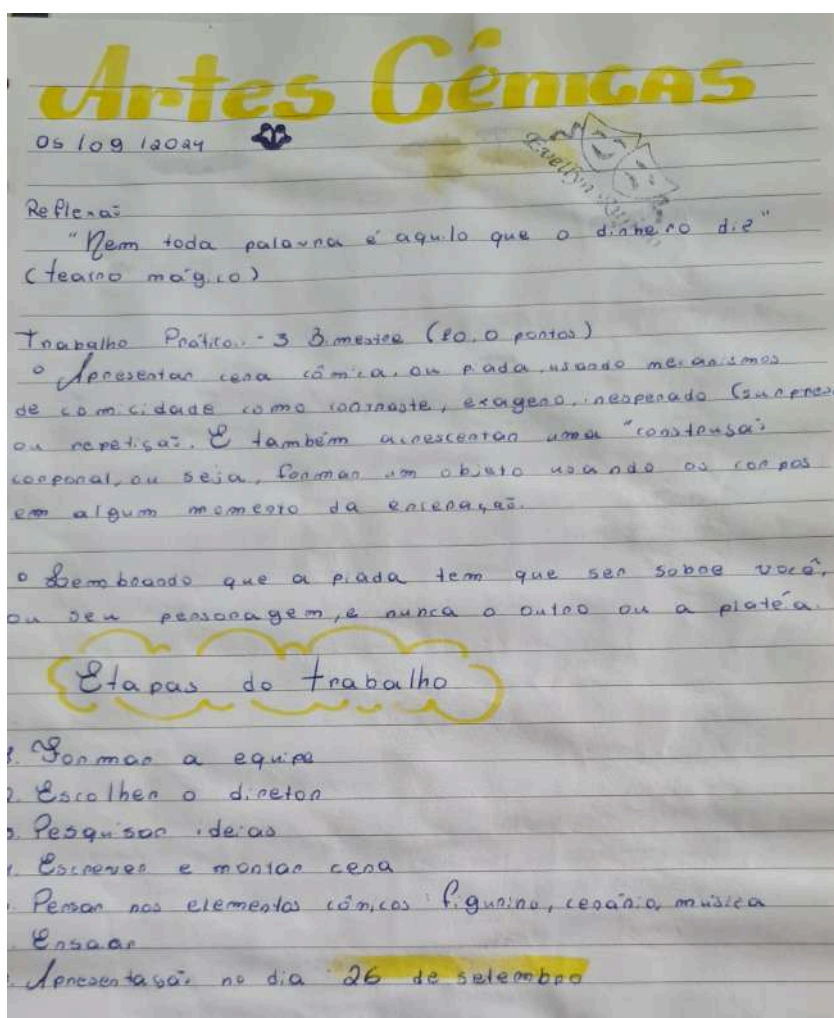 Artes Cênicas
05/09/2024
Evellyn
Reflexaõ
"Nem toda palavra é aquilo que o dinheiro diz"
(teatro mágico)
Trabalho Prático - 3 Bimestre (10,0 pontos)
Apresentar cena cômica, ou piada, usando mecanismos
de comicidade como contraste, exagero, inesperado (surpresa
ou repetisaõ. E também acrescentar uma "construsaõ
corporal, ou seja, formar um objeto usando os corpos
em algum momento da encenaçaõ.
Lembrando que a piada tem que ser sobre você,
ou seu personagem, e nunca o outro ou a platéa.
Etapas do trabalho
1. Formar a equipe
2. Escolher o diretor
3. Pesquisar ideias
4. Escrever e montar cena
Pensar nos elementos cênicos: figurino, cenário, música
Ensaar
Apresentasaõ no dia 26 de setembro